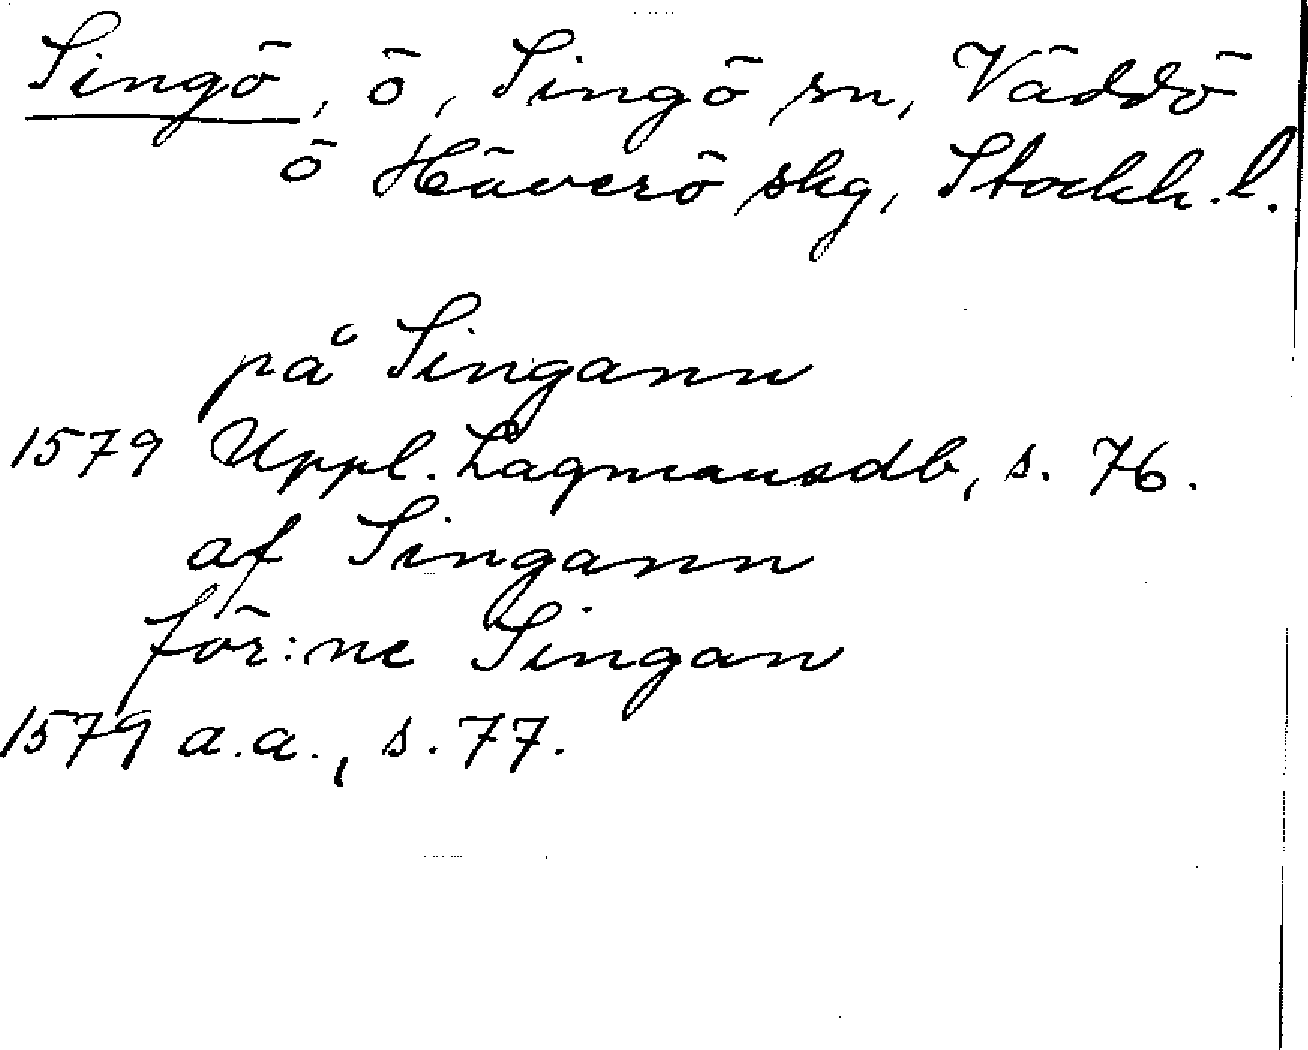 Singö, ö, Singö sn, Väddö
o Häverö skg, Stockh. l.
på Singann
1579 Uppl. Lagmansdb, s. 76.
af Singann
för:ne Singan
1579 a.a., s. 77.